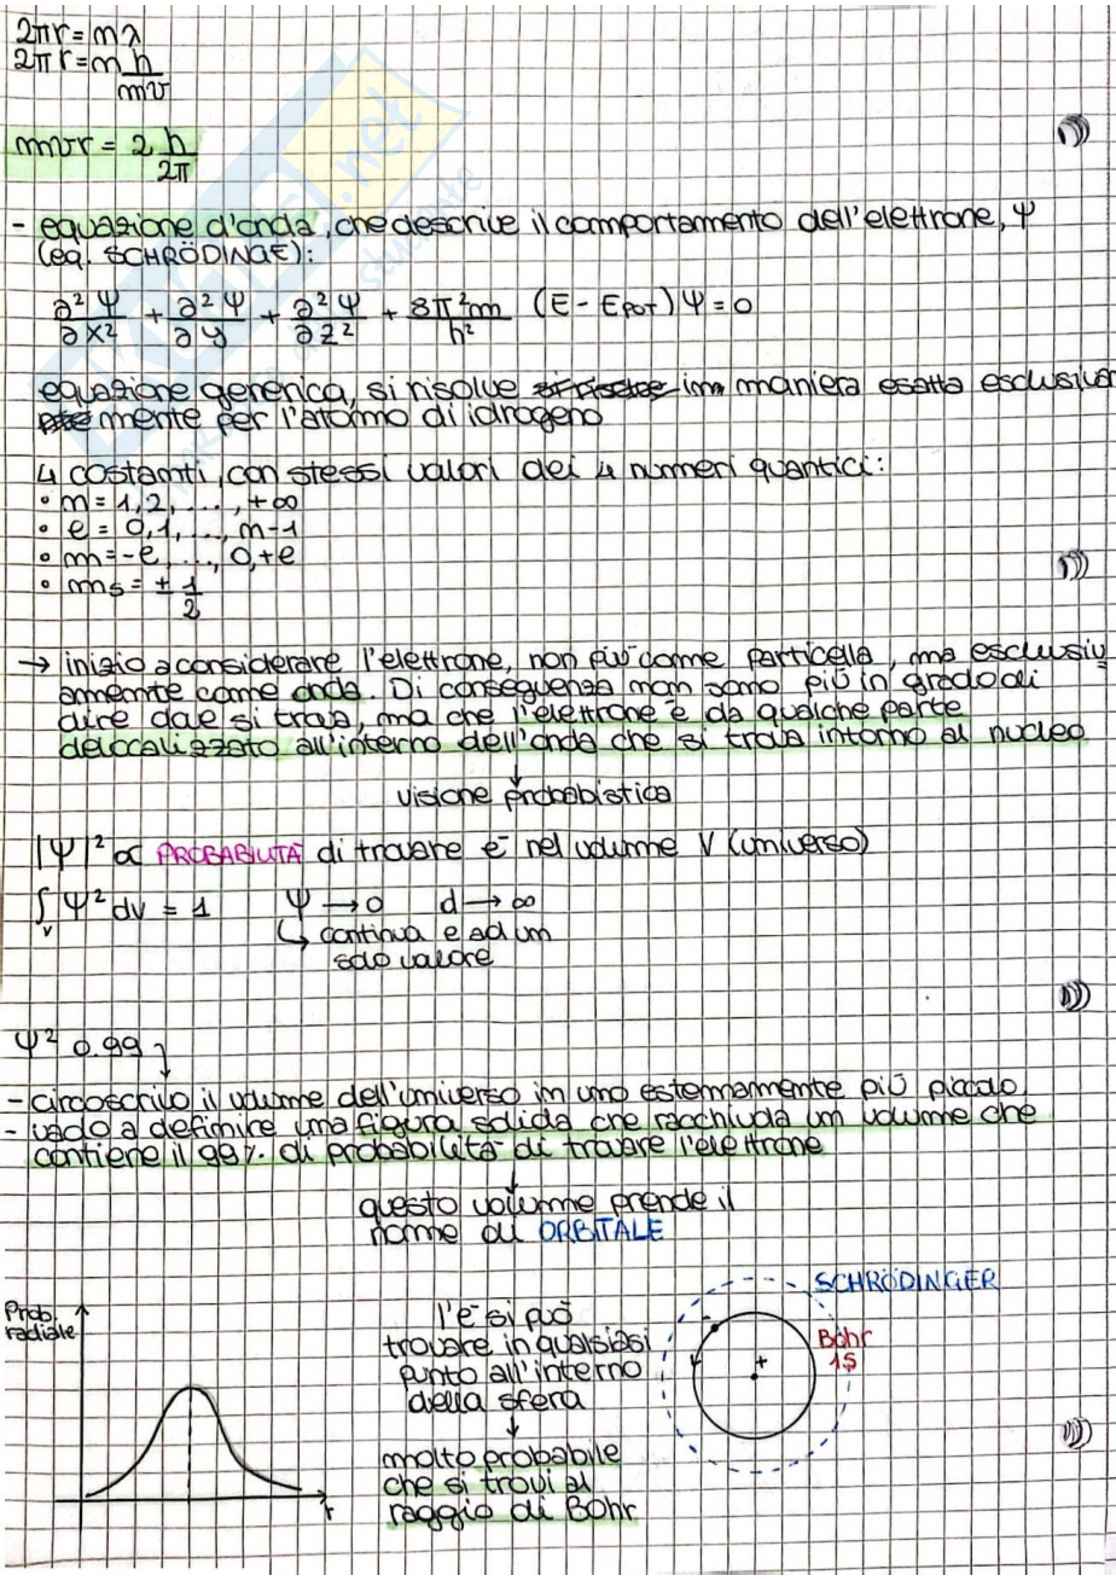 2πr = nλ
2πr = n h/mv
mvr = 2 h/2π
- equazione d'onda, che descrive il comportamento dell'elettrone, ψ
(eq. SCHRÖDINGE):
∂²ψ/∂x² + ∂²ψ/∂y + ∂²ψ/∂z² + 8π²m/h² (E - EPOT) ψ = 0
equazione generica, si risolve in maniera esatta esclusiva
mente per l'atomo di idrogeno
4 costanti, con stessi valori dei 4 numeri quantici:
• n = 1, 2, ..., +∞
• l = 0, 1, ..., n-1
• m = -l, ..., 0, +l
• ms = ± 1/2
→ inizio a considerare l'elettrone, non più come particella, ma esclusiv
amente come onda. Di conseguenza non sono più in grado di
dire dove si trova, ma che l'elettrone è da qualche parte
delocalizzato all'interno dell'onda che si trova intorno al nucleo
↓
visione probabistica
|ψ|² ∝ PROBABILITÀ di trovare e⁻ nel volume V (universo)
∫v ψ² dv = 1 ψ → 0 d → ∞
↳ continua e ad un
solo valore
ψ² 0.99
- circoscrivo il volume dell'universo in uno esternamente più piccolo
- vado a definire una figura solida che racchiuda un volume che
contiene il 99% di probabilità di trovare l'elettrone
↓
questo volume prende il
nome di ORBITALE
Prob.
radiale
r
l'e⁻ si può
trovare in qualsiasi
punto all'interno
della sfera
↓
molto probabile
che si trovi al
raggio di Bohr
SCHRÖDINGER
Bohr
1S
+